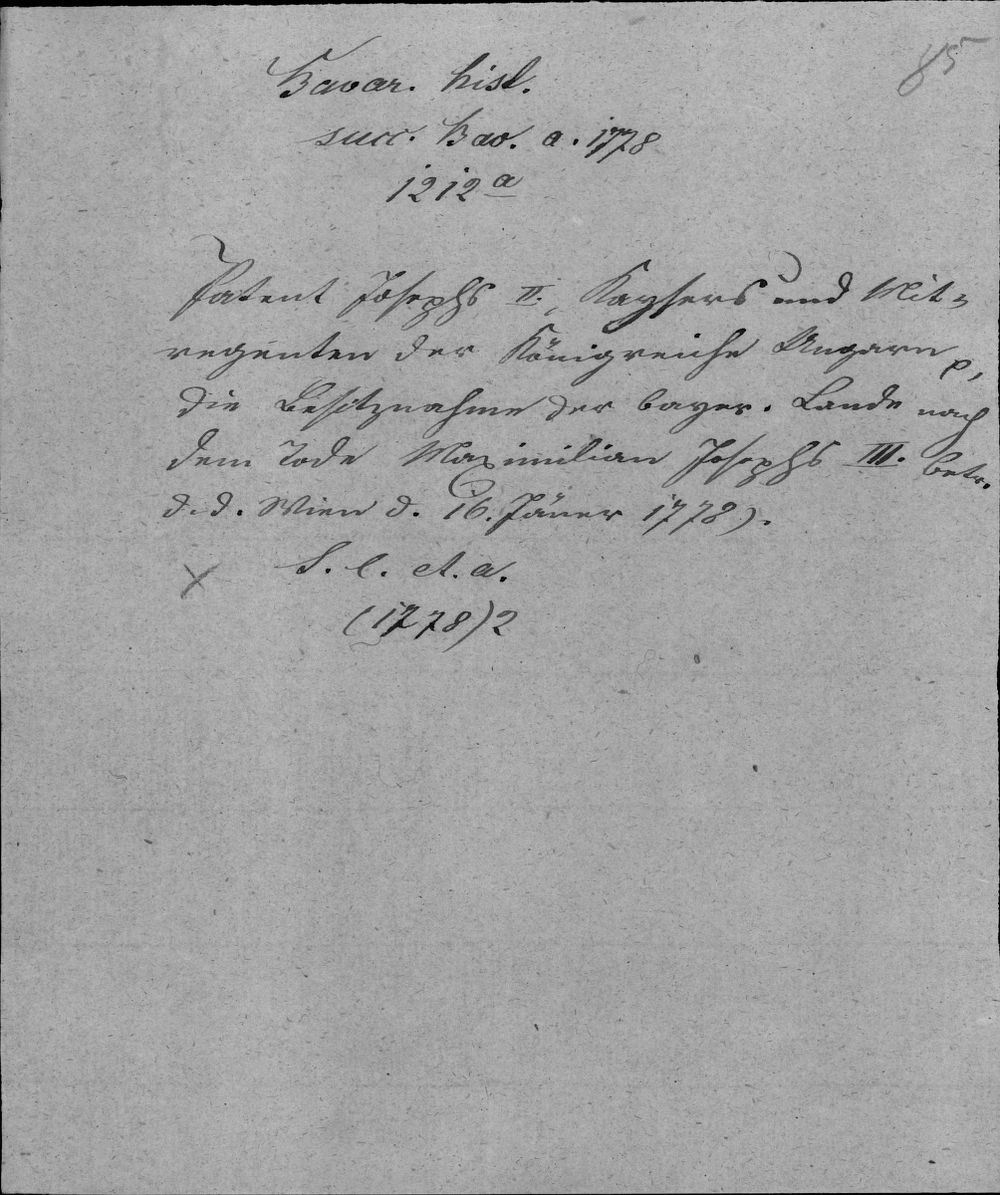 85
Bavar. hist.
succ. Bav. a. 1778
1212 a
Patent Josephs II., Kaysers und Mit-
regenten der Königreiche Ungarn
die Besitznahme der bayer. Lande nach
dem Tode Maximilian Josephs III. betr.
d. d. Wien d. 16. Jäner 1778).
S. l. et a.
(1778) 2